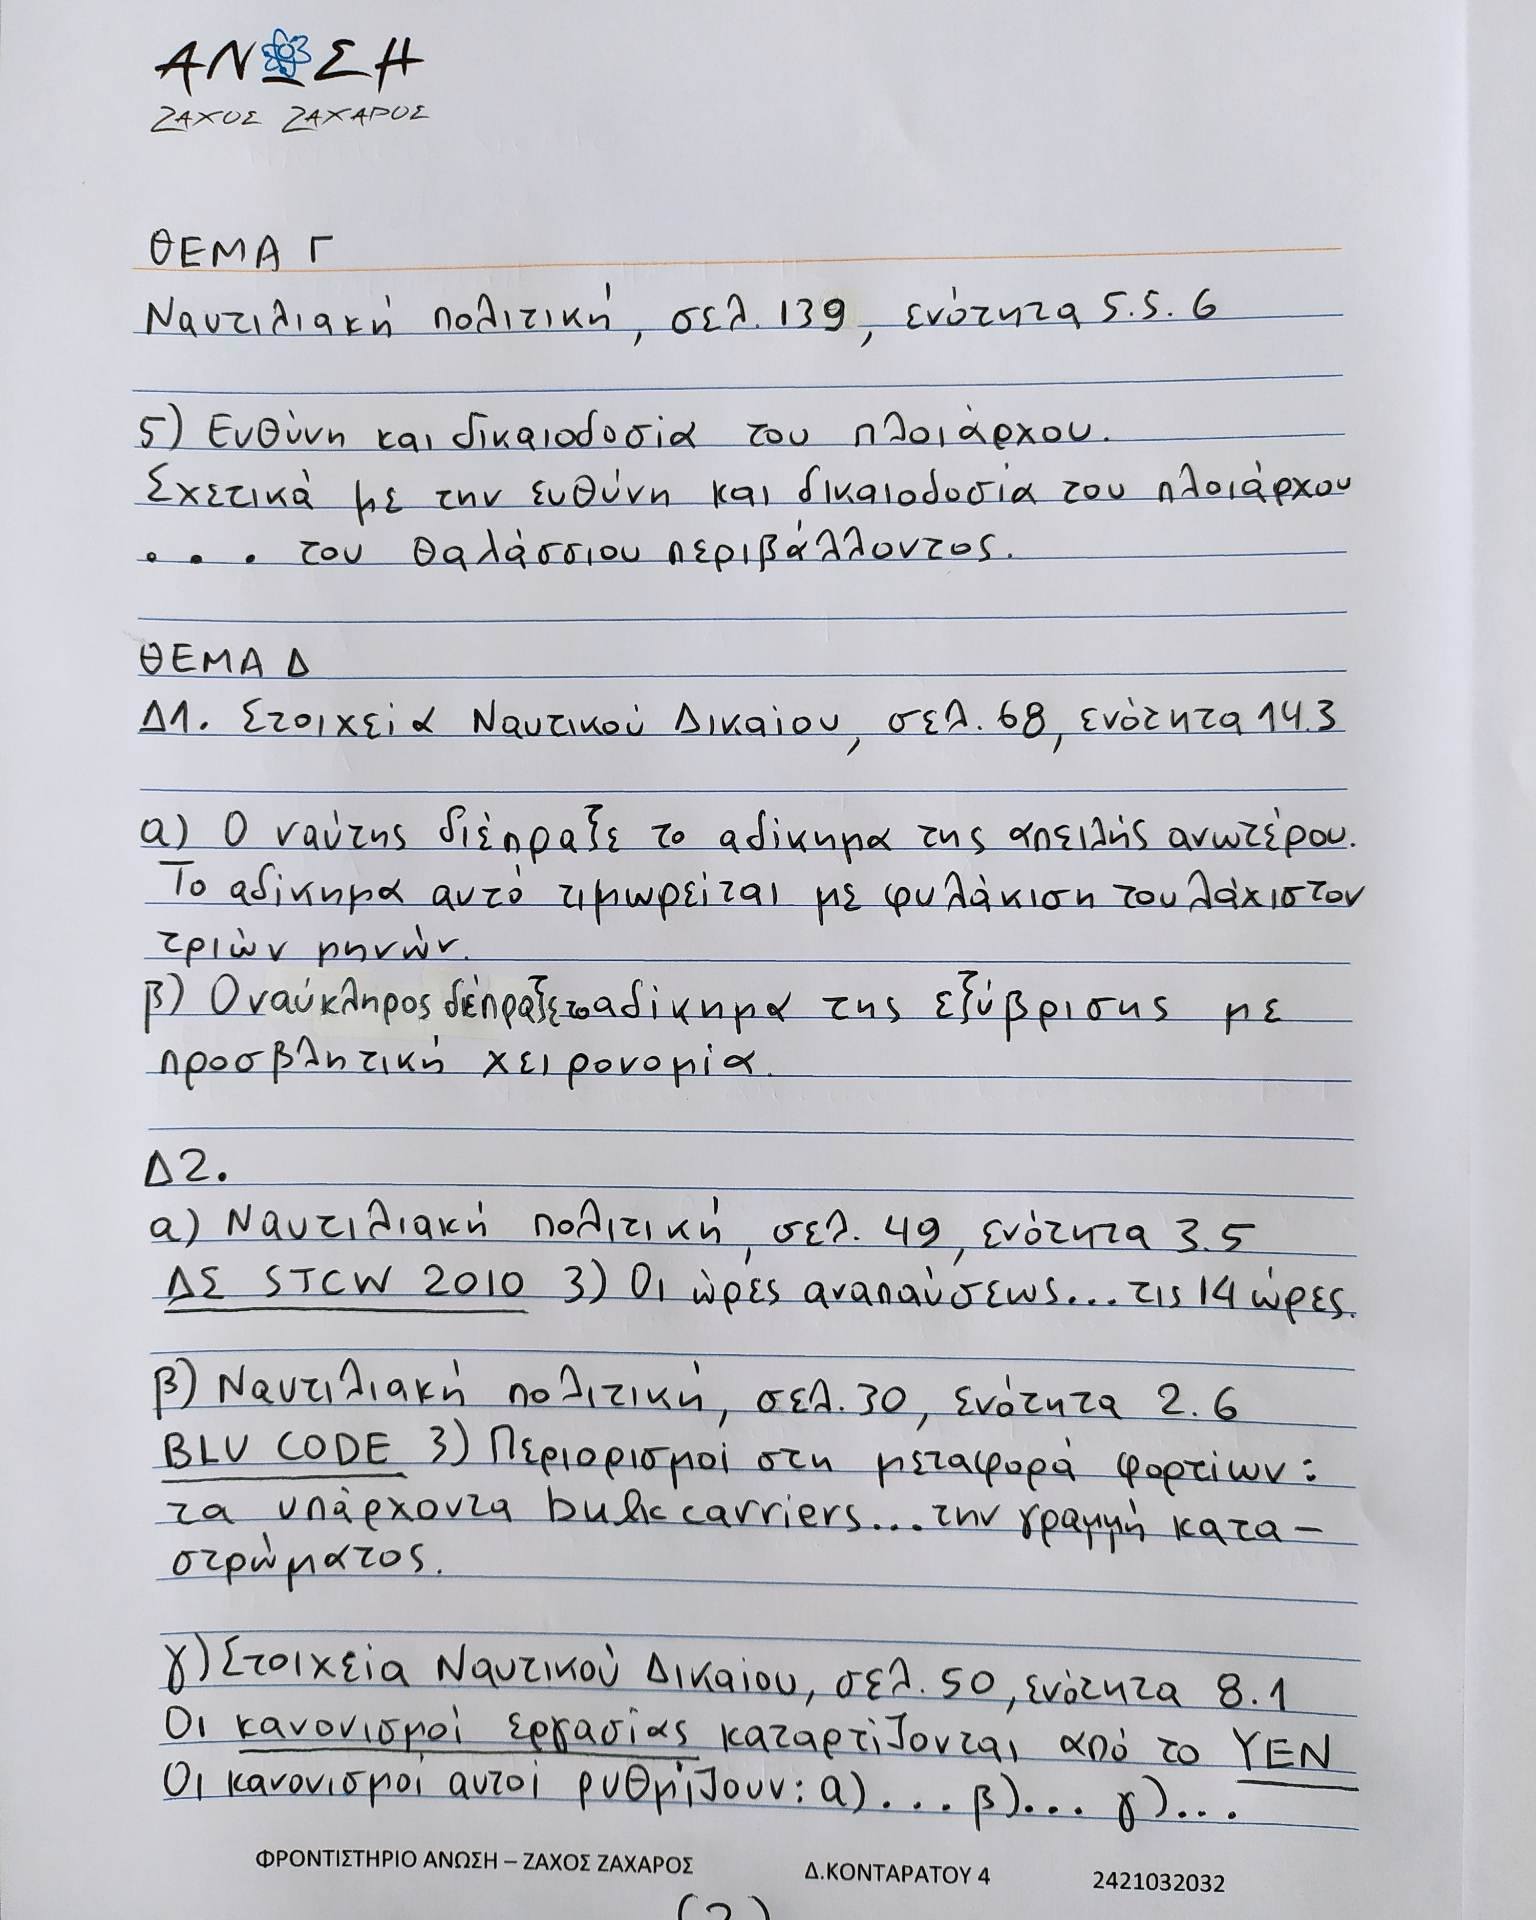 ΑΝΩΣΗ
ΖΑΧΟΣ ΖΑΧΑΡΟΣ
ΘΕΜΑ Γ
Ναυτιλιακή πολιτική, σελ. 139, ενότητα 5.5.6
5) Ευθύνη και δικαιοδοσία του πλοιάρχου.
Σχετικά με την ευθύνη και δικαιοδοσία του πλοιάρχου
... του θαλάσσιου περιβάλλοντος.
ΘΕΜΑ Δ
Δ1. Στοιχεία Ναυτικού Δικαίου, σελ. 68, ενότητα 14.3
α) Ο ναύτης διέπραξε το αδίκημα της απειλής ανωτέρου.
Το αδίκημα αυτό τιμωρείται με φυλάκιση τουλάχιστον
τριών μηνών.
β) Ο ναύκληρος διέπραξε το αδίκημα της εξύβρισης με
προσβλητική χειρονομία.
Δ2.
α) Ναυτιλιακή πολιτική, σελ. 49, ενότητα 3.5
ΔΣ STCW 2010 3) Οι ώρες αναπαύσεως... τις 14 ώρες.
β) Ναυτιλιακή πολιτική, σελ. 30, ενότητα 2.6
BLU CODE 3) Περιορισμοί στη μεταφορά φορτίων:
τα υπάρχοντα bulk carriers... την γραμμή κατα-
στρώματος.
γ) Στοιχεία Ναυτικού Δικαίου, σελ. 50, ενότητα 8.1
Οι κανονισμοί εργασίας καταρτίζονται από το ΥΕΝ
Οι κανονισμοί αυτοί ρυθμίζουν: α)... β)... γ)...
ΦΡΟΝΤΙΣΤΗΡΙΟ ΑΝΩΣΗ – ΖΑΧΟΣ ΖΑΧΑΡΟΣ Δ.ΚΟΝΤΑΡΑΤΟΥ 4 2421032032
(2)